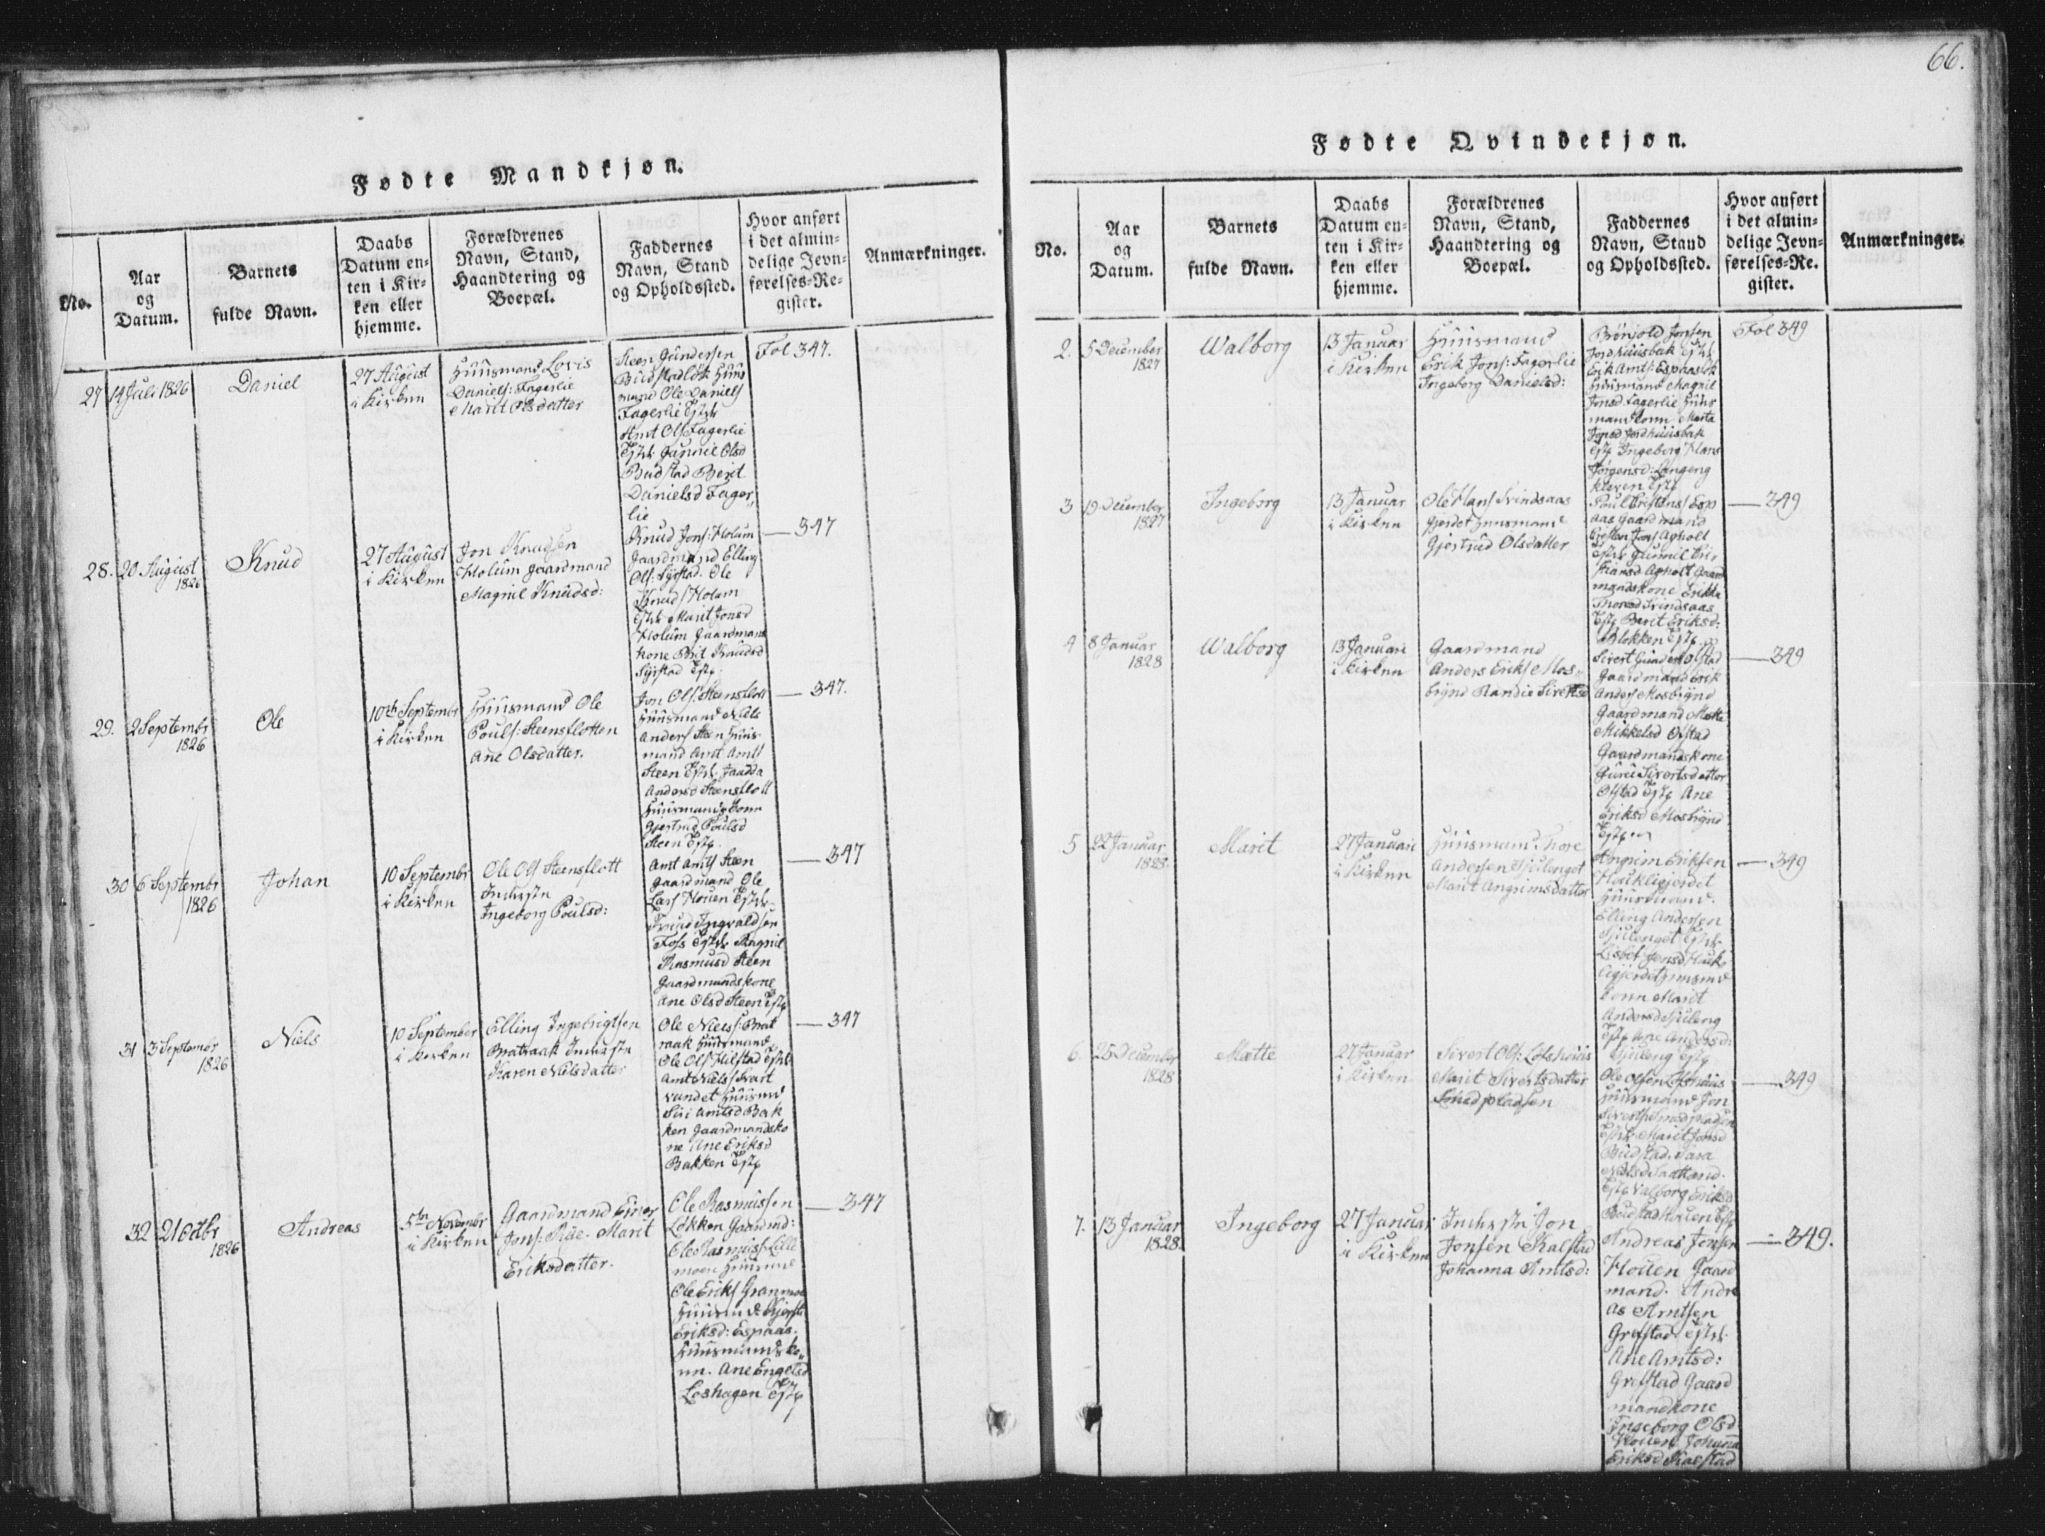 66.
Fødte Mandkjøn.
No.
Aar
og
Datum.
Barnets
fulde Navn.
Daabs
Datum en-
ten i Kir-
ken eller
hjemme.
Forældrenes
Navn, Stand,
Haandtering og
Boepæl.
Faddernes
Navn, Stand
og Opholdssted.
Hvor anført
i det almin-
delige Jevn-
førelses-Re-
gister.
Anmærkninger.
27 14 Juli 1826
Daniel
27 August
i Kirken
Huusmand Lovis
Daniels: Fagerlie
Marit Olsdatter
Steen Gundersen
Budstadløk Huus
mand Ole Daniels
Fagerlie Estk
Amt Ols Fagerlie
Estk Gunnil Olsd
Budstad Berit
Danielsd Fager
lie
Fol 347.
28. 20 August
1826
Knud
27 August
i Kirken
Jon Knudsen
Holum gaardmand
Magnil Knudsd:
Knud Jons: Holum
Gaardmand Elling
Ols: Syrstad. Ole
Knuds Holum
Estk Marit Jonsd
Holum Gaardmans
kone Brit Knudsd
Syrstad Estp.
347
29. 2 Septembr
1826
Ole
10de Septembr
i Kirken
Huusmand Ole
Pouls: Steensflotten
Ane Olsdatter.
Jon Ols Steensflott
Huusmand Nils
Anders Steen Huus-
mand Amt Amts
Steen Estk
Andersd Steensflott
Huusmands
Gjertrud Poulsd
Steen Estp.
347.
30 6 Septembr
1826
Johan
10 Septembr
i Kirken
Ole Ols Steensflott
Inderste
Ingeborg Poulsd:
Amt Amts Steen
Gaardmand Ole
Lars Houen Estk
Ingvaldsen
Foss Estk Magnil
Rasmusd Steen
Gaardmandskone
Ane Olsd Steen Estp
347
31 3 Septembr
1826
Niels
10 September
i Kirken
Elling Ingebrigtsen
Bratraak Inderste
Karen Nilsdatter
Ole Niels: Brat
raak Huusmand
Ole Ols Hilstad Estk
Amt Niels Svart
vandet Huusmd
Siri Amtsd Bak
ken Gaardmandsko
ne Ane Eriksd
Bakken Estp
347
32 21 Octbr
1826
Andreas
5te Novembr
i Kirken
Gaardmand Einer
Jons: Rise. Marit
Eriksdatter.
Ole Rasmussen
Løkken Gaardmd:
Ole Rasmuss: Lille
moen Huusmd
Ole Eriks Granmoe
Huusmd
Eriksd: Espaas.
Huusmandsko
nn. Ane Engelsd
Loshagen Estp
347
Fødte Qvindekjøn.
No.
Aar
og
Datum.
Barnets
fulde Navn.
Daabs
Datum en-
ten i Kir-
ken eller
hjemme.
Forældrenes
Navn, Stand,
Haandtering og
Boepæl.
Faddernes
Navn, Stand
og Opholdssted.
Hvor anført
i det almin-
delige Jevn-
førelses-Re-
gister.
Anmærkninger.
2. 5 December
1827
Walborg
13 Januar
i Kirken
Huusmand
Erik Jons: Fagerlie
Ingeborg Danielsd:
Jonsen
Jordhuusbak Estk
Erik Amts: Espaas
Huusmand Magnil
Jonsd Fagerlie Huus
mand Marta
Jonsd Jordhuusbak
Estp Ingeborg Hans
Jørgensd: Langeng
Estp
Fol 349
3 19 December
1827
Ingeborg
13 Januar
i Kirken
Ole Hans Svindsaas
Gjerdet Huusmand
Gjertrud Olsdatter
Poul Cristens Esp
aas Gaardmand
Cristen Jons Agholt
Estk Gunnil
Agholt Gaard
mandskone Erikka
Thoresd Svindsaas
Estp Berit Eriksd:
Blokken Estp
349
4 8 Januar
1828
Walborg
13 Januari
i Kirken
Gaardmand
Anders Eriks Mos-
brynd Randie Siverts
Sivert Gunders Olstad
Gaardmand Erik
Anders Mosbrynd
Gaardmand Mette
Mikkelsd Olstad
Gaardmandskone
Guru Sivertsdatter
Olstad Estp Ane
Eriksd Mosbrynd
Estp
349
5 22 Januar
1828
Marit
27 Januari
i Kirken
Huusmand Thore
Andersen Sjulenget
Marit Angrimsdatter
Angrim Eriksen
Haukligjerdet
Huusmand.
Elling Andersen
Sjulenget Estk
Lisbet Jonsd Hauk
ligjerdet Huusmd
konn Marit
Andersd Sjuleng
Estp Ane Andersd:
Sjuleng Estp
349
6. 25 December
1828
Mætte
27 Januar
i Kirken
Sivert Ols: Løkshuus
Marit Sivertsdatter
Smedpladsen
Ole Olsen
Huusmand Jon
Siverts Smedpladsen
Estk Marit Jonsd
Budstad. Sara
Estp Valborg Eriksd
Estp
349
7. 13 Januar
1828.
Ingeborg
27 Januar
i Kirken
Inderste Jon
Jonsen Kalstad
Johanna Amtsd:
Andreas Jonsen
Houen Gaard
mand. Andre
as Arntsen
Grefstad Estk
Ane Amtsd:
Grefstad Gaard
mandkone
Ingeborg Olsd
Houen Johanna
Eriksd Kalstad
349.